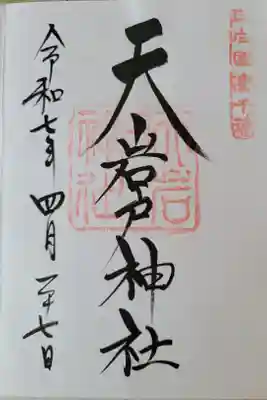 天岩戸神社
令和七年 四月 二十七日